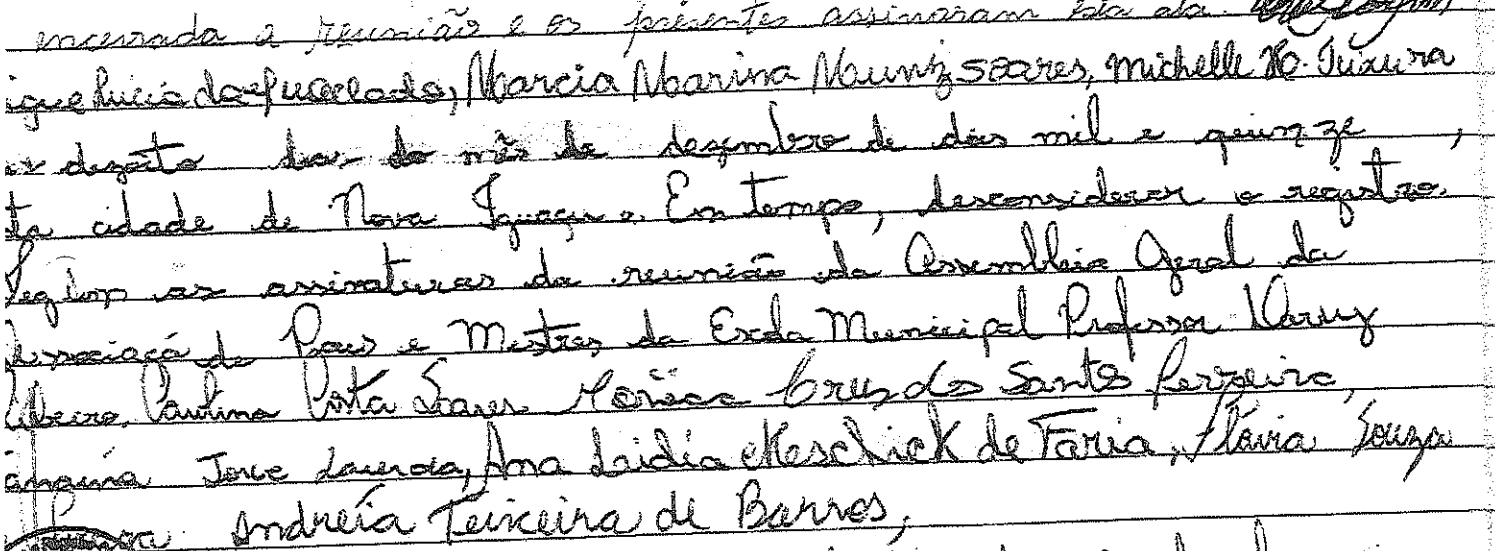 encerrada a reunião e os presentes assinaram esta ata.
Lucia da, Marcia Marina Muniz soares, Michelle H. Teixeira
dezoito dias do mês de dezembro de dois mil e quinze,
ta cidade de Nova Iguaçu. Em tempo, desconsiderar o registro.
as assinaturas da reunião da Assembléia Geral da
Associaçã de Pais e Mestres da Escola Municipal Professor
Ribeiro, Paulina Costa Soares Mônica Cruz do Santos Ferreira,
Ana Lidia Meschick de Faria, Flávia Souza
Andreía Teixeira de Barros,